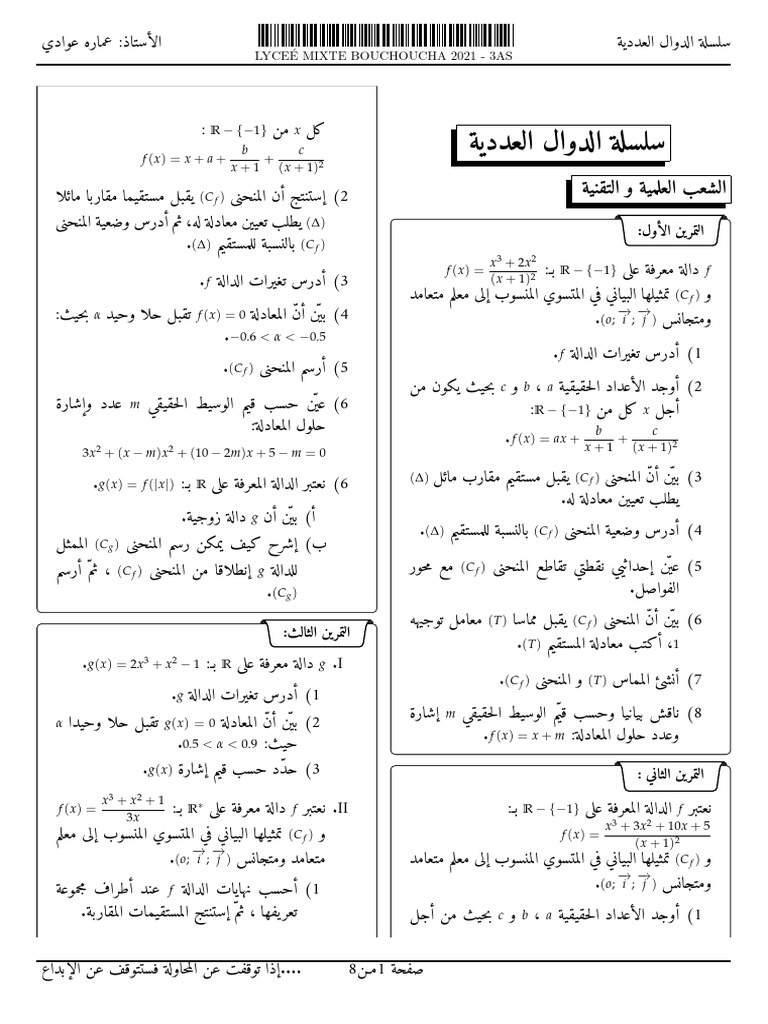 سلسلة الدوال العددية
LYCEÉ MIXTE BOUCHOUCHA 2021 - 3AS
الأستاذ: عماره عوادي
سلسلة الدوال العددية
الشعب العلمية و التقنية
التمرين الأول:
f دالة معرفة على ℝ − {−1} بـ: f(x) = (x³ + 2x²)/(x + 1)²
و (C_f) تمثيلها البياني في المتسوي المنسوب إلى معلم متعامد
ومتجانس (o; i⃗; j⃗).
1) أدرس تغيرات الدالة f.
2) أوجد الأعداد الحقيقية a ، b و c بحيث يكون من
أجل x كل من ℝ − {−1}:
f(x) = ax + b/(x + 1) + c/(x + 1)².
3) بيّن أنّ المنحنى (C_f) يقبل مستقيم مقارب مائل (Δ)
يطلب تعيين معادلة له.
4) أدرس وضعية المنحنى (C_f) بالنسبة للمستقيم (Δ).
5) عيّن إحداثيي نقطتي تقاطع المنحنى (C_f) مع محور
الفواصل.
6) بيّن أنّ المنحنى (C_f) يقبل مماسا (T) معامل توجيهه
1، أكتب معادلة المستقيم (T).
7) أنشئ المماس (T) و المنحنى (C_f).
8) ناقش بيانيا وحسب قيّم الوسيط الحقيقي m إشارة
وعدد حلول المعادلة: f(x) = x + m.
التمرين الثاني :
نعتبر f الدالة المعرفة على ℝ − {−1} بـ:
f(x) = (x³ + 3x² + 10x + 5)/(x + 1)²
و (C_f) تمثيلها البياني في المتسوي المنسوب إلى معلم متعامد
ومتجانس (o; i⃗; j⃗).
1) أوجد الأعداد الحقيقية a ، b و c بحيث من أجل
كل x من ℝ − {−1} :
f(x) = x + a + b/(x + 1) + c/(x + 1)²
2) إستنتج أن المنحنى (C_f) يقبل مستقيما مقاربا مائلا
(Δ) يطلب تعيين معادلة له، ثم أدرس وضعية المنحنى
(C_f) بالنسبة للمستقيم (Δ).
3) أدرس تغيرات الدالة f.
4) بيّن أنّ المعادلة f(x) = 0 تقبل حلا وحيد α بحيث:
−0.6 < α < −0.5.
5) أرسم المنحنى (C_f).
6) عيّن حسب قيم الوسيط الحقيقي m عدد وإشارة
حلول المعادلة:
3x² + (x − m)x² + (10 − 2m)x + 5 − m = 0
6) نعتبر الدالة المعرفة على ℝ بـ: g(x) = f(|x|).
أ) بيّن أن g دالة زوجية.
ب) إشرح كيف يمكن رسم المنحنى (C_g) الممثل
للدالة g إنطلاقا من المنحنى (C_f) ، ثمّ أرسم
(C_g).
التمرين الثالث:
I. g دالة معرفة على ℝ بـ: g(x) = 2x³ + x² − 1.
1) أدرس تغيرات الدالة g.
2) بيّن أنّ المعادلة g(x) = 0 تقبل حلا وحيدا α
حيث: 0.5 < α < 0.9.
3) حدّد حسب قيم إشارة g(x).
II. نعتبر f دالة معرفة على ℝ* بـ: f(x) = (x³ + x² + 1)/3x
و (C_f) تمثيلها البياني في المتسوي المنسوب إلى معلم
متعامد ومتجانس (o; i⃗; j⃗).
1) أحسب نهايات الدالة f عند أطراف مجموعة
تعريفها ، ثمّ إستنتج المستقيمات المقاربة.
صفحة 1 من 8
....إذا توقفت عن المحاولة فستتوقف عن الإبداع